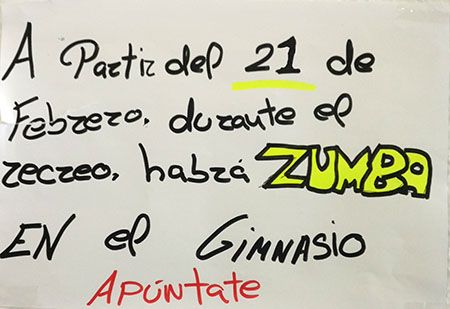 A Partir del 21 de
Febrero, durante el
recreo, habrá ZUMBA
EN el GIMNASIO
APÚNtAte